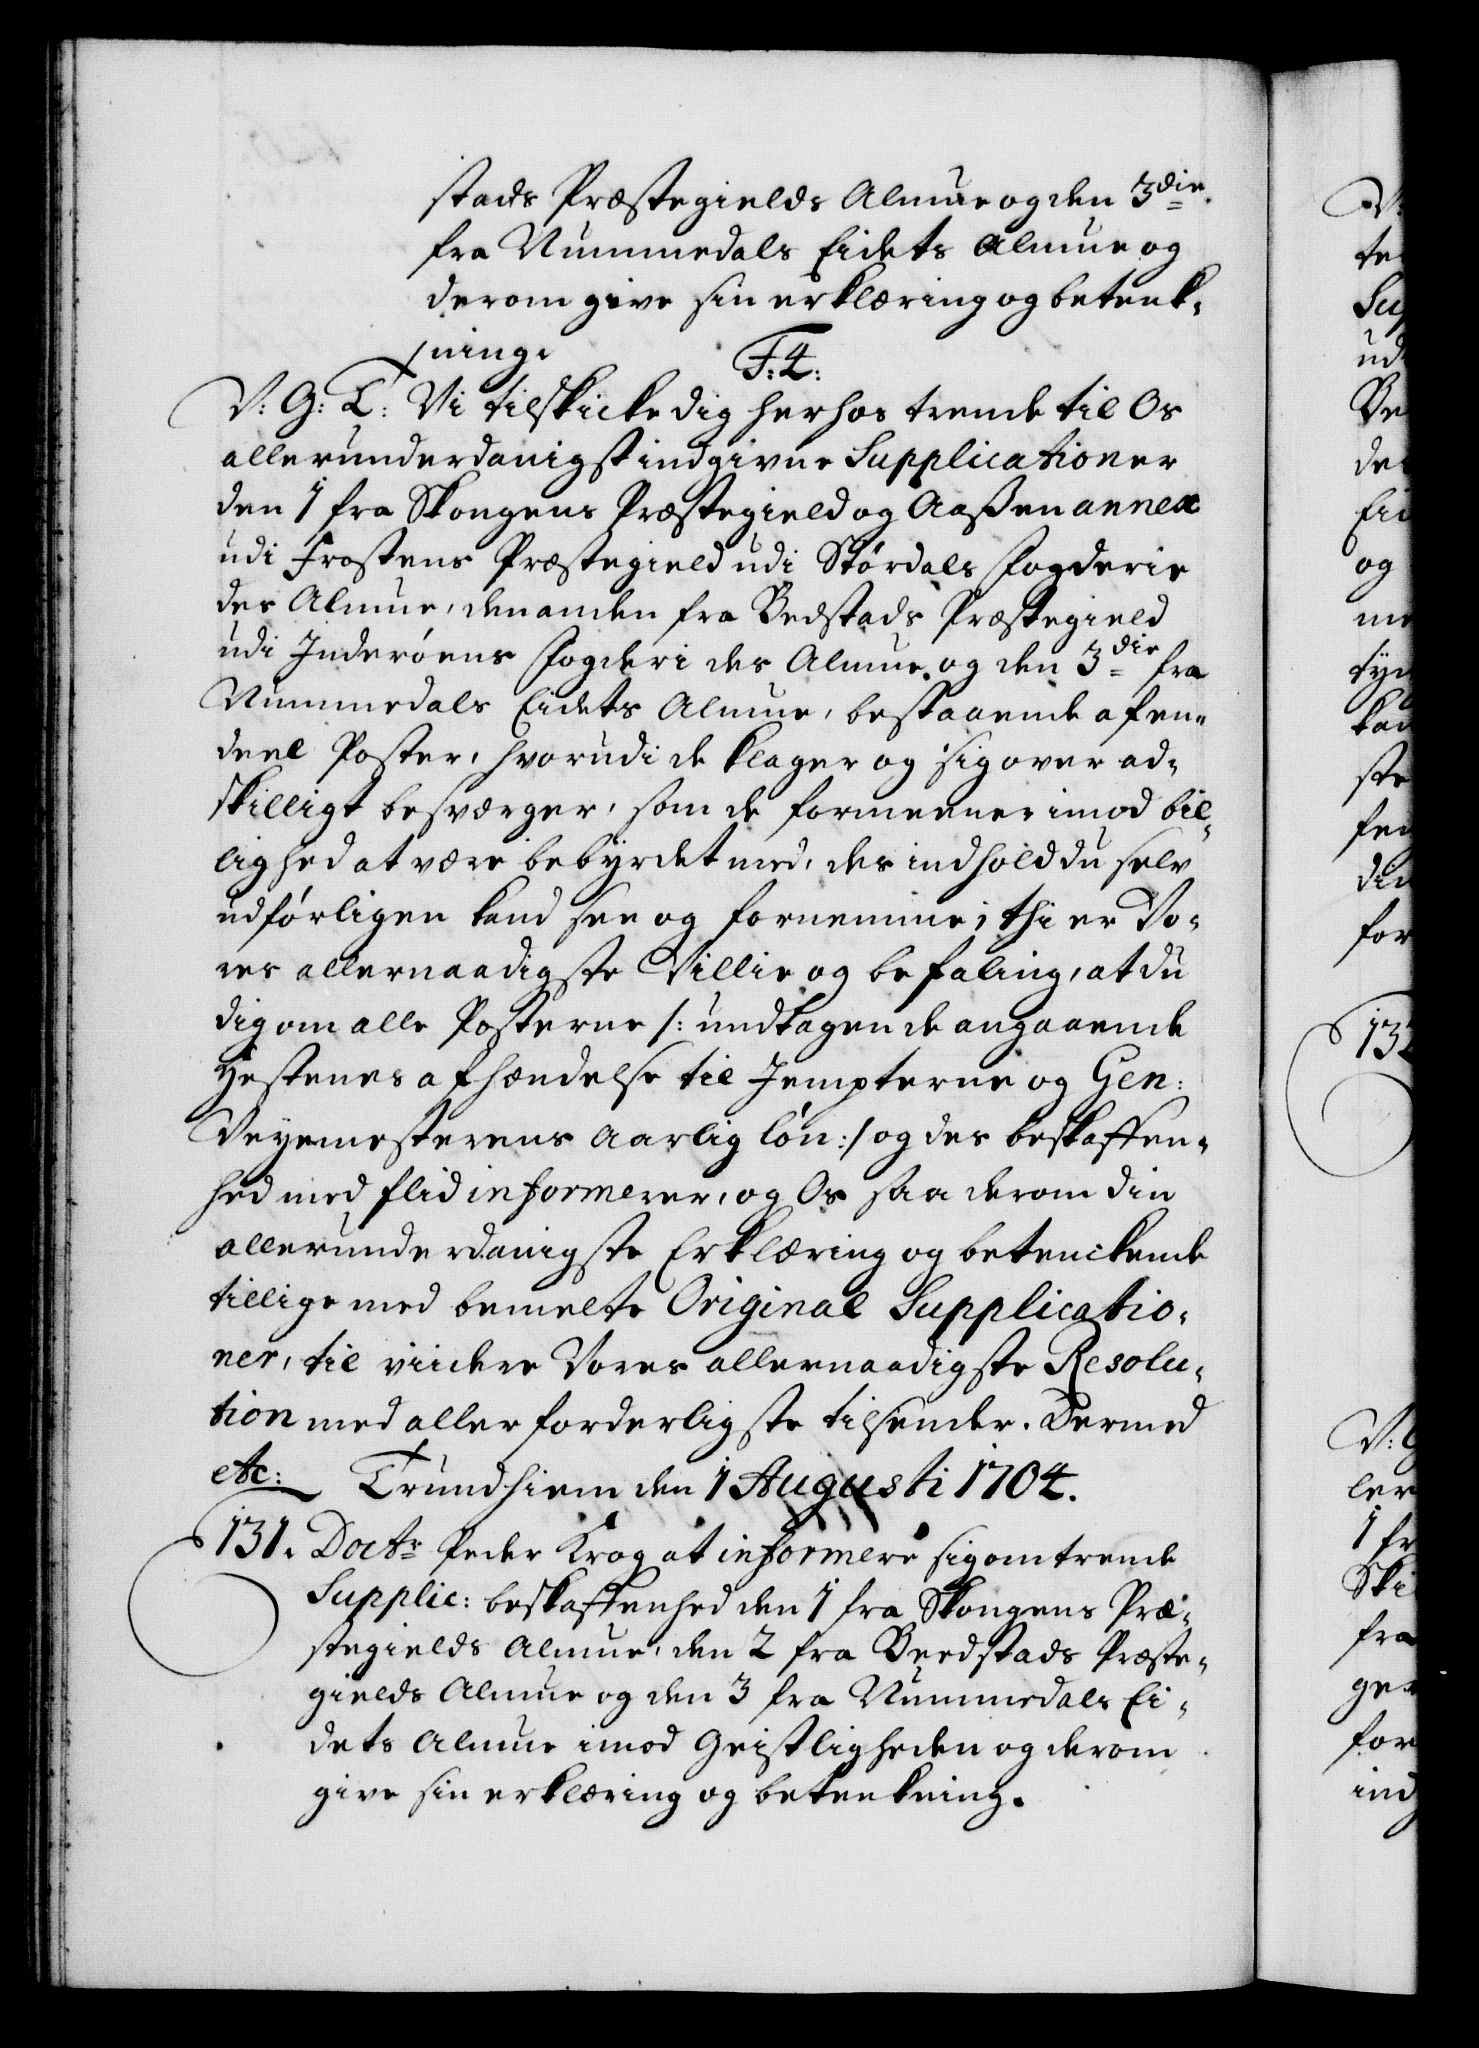 stads Præstegields Almue og den 3die.
fra Nummedals Eidets Almue og
derom give sin erklæring og betenk-
ning.
F: 4:
V: G: T: Vi tilskicke dig herhos trende til Os
allerunderdanigst indgivne Supplicationer
den 1 fra Skongens Præstegield og Aaßen annex
udi Frostens Præstegield udi Størdals Fogderie
des Almue, den anden fra Bedstads Præstegield
udi Inderøens Fogderi des Almue, og den 3die fra
Nummedals Eidets Almue, bestaaende af en-
deel Poster, hvorudi de klager og sig over ad-
skilligt besværger, som de formeener imod bil-
lighed at være bebyrdet med, des indhold du selv
udførligen kand see og fornemme; thi er Vo-
res allernaadigste Villie og befaling, at du
dig om alle Posterne /: undtagen de angaaende
Hestenes afhændelse til Jempterne og Gen:
Veyemesterens aarlig løn :/ og des beskaffen-
hed med flid informerer, og Os saa derom din
allerunderdanigste Erklæring og betenckende
tillige med bemelte Original Supplicatio-
ner, til viidere Vores allernaadigste Resolu-
tion med allerforderligste tilsender. Dermed
etc: Trundhiem den 1 Augusti 1704.
131. Doctr Peder Krog at informere sig om trende
Supplic: beskaffenhed den 1 fra Skongens Præ-
stegields Almue, den 2 fra Beedstads Præste-
gields Almue og den 3 fra Nummedals Ei-
dets Almue imod Geistligheden og derom
give sin erklæring og betenkning.